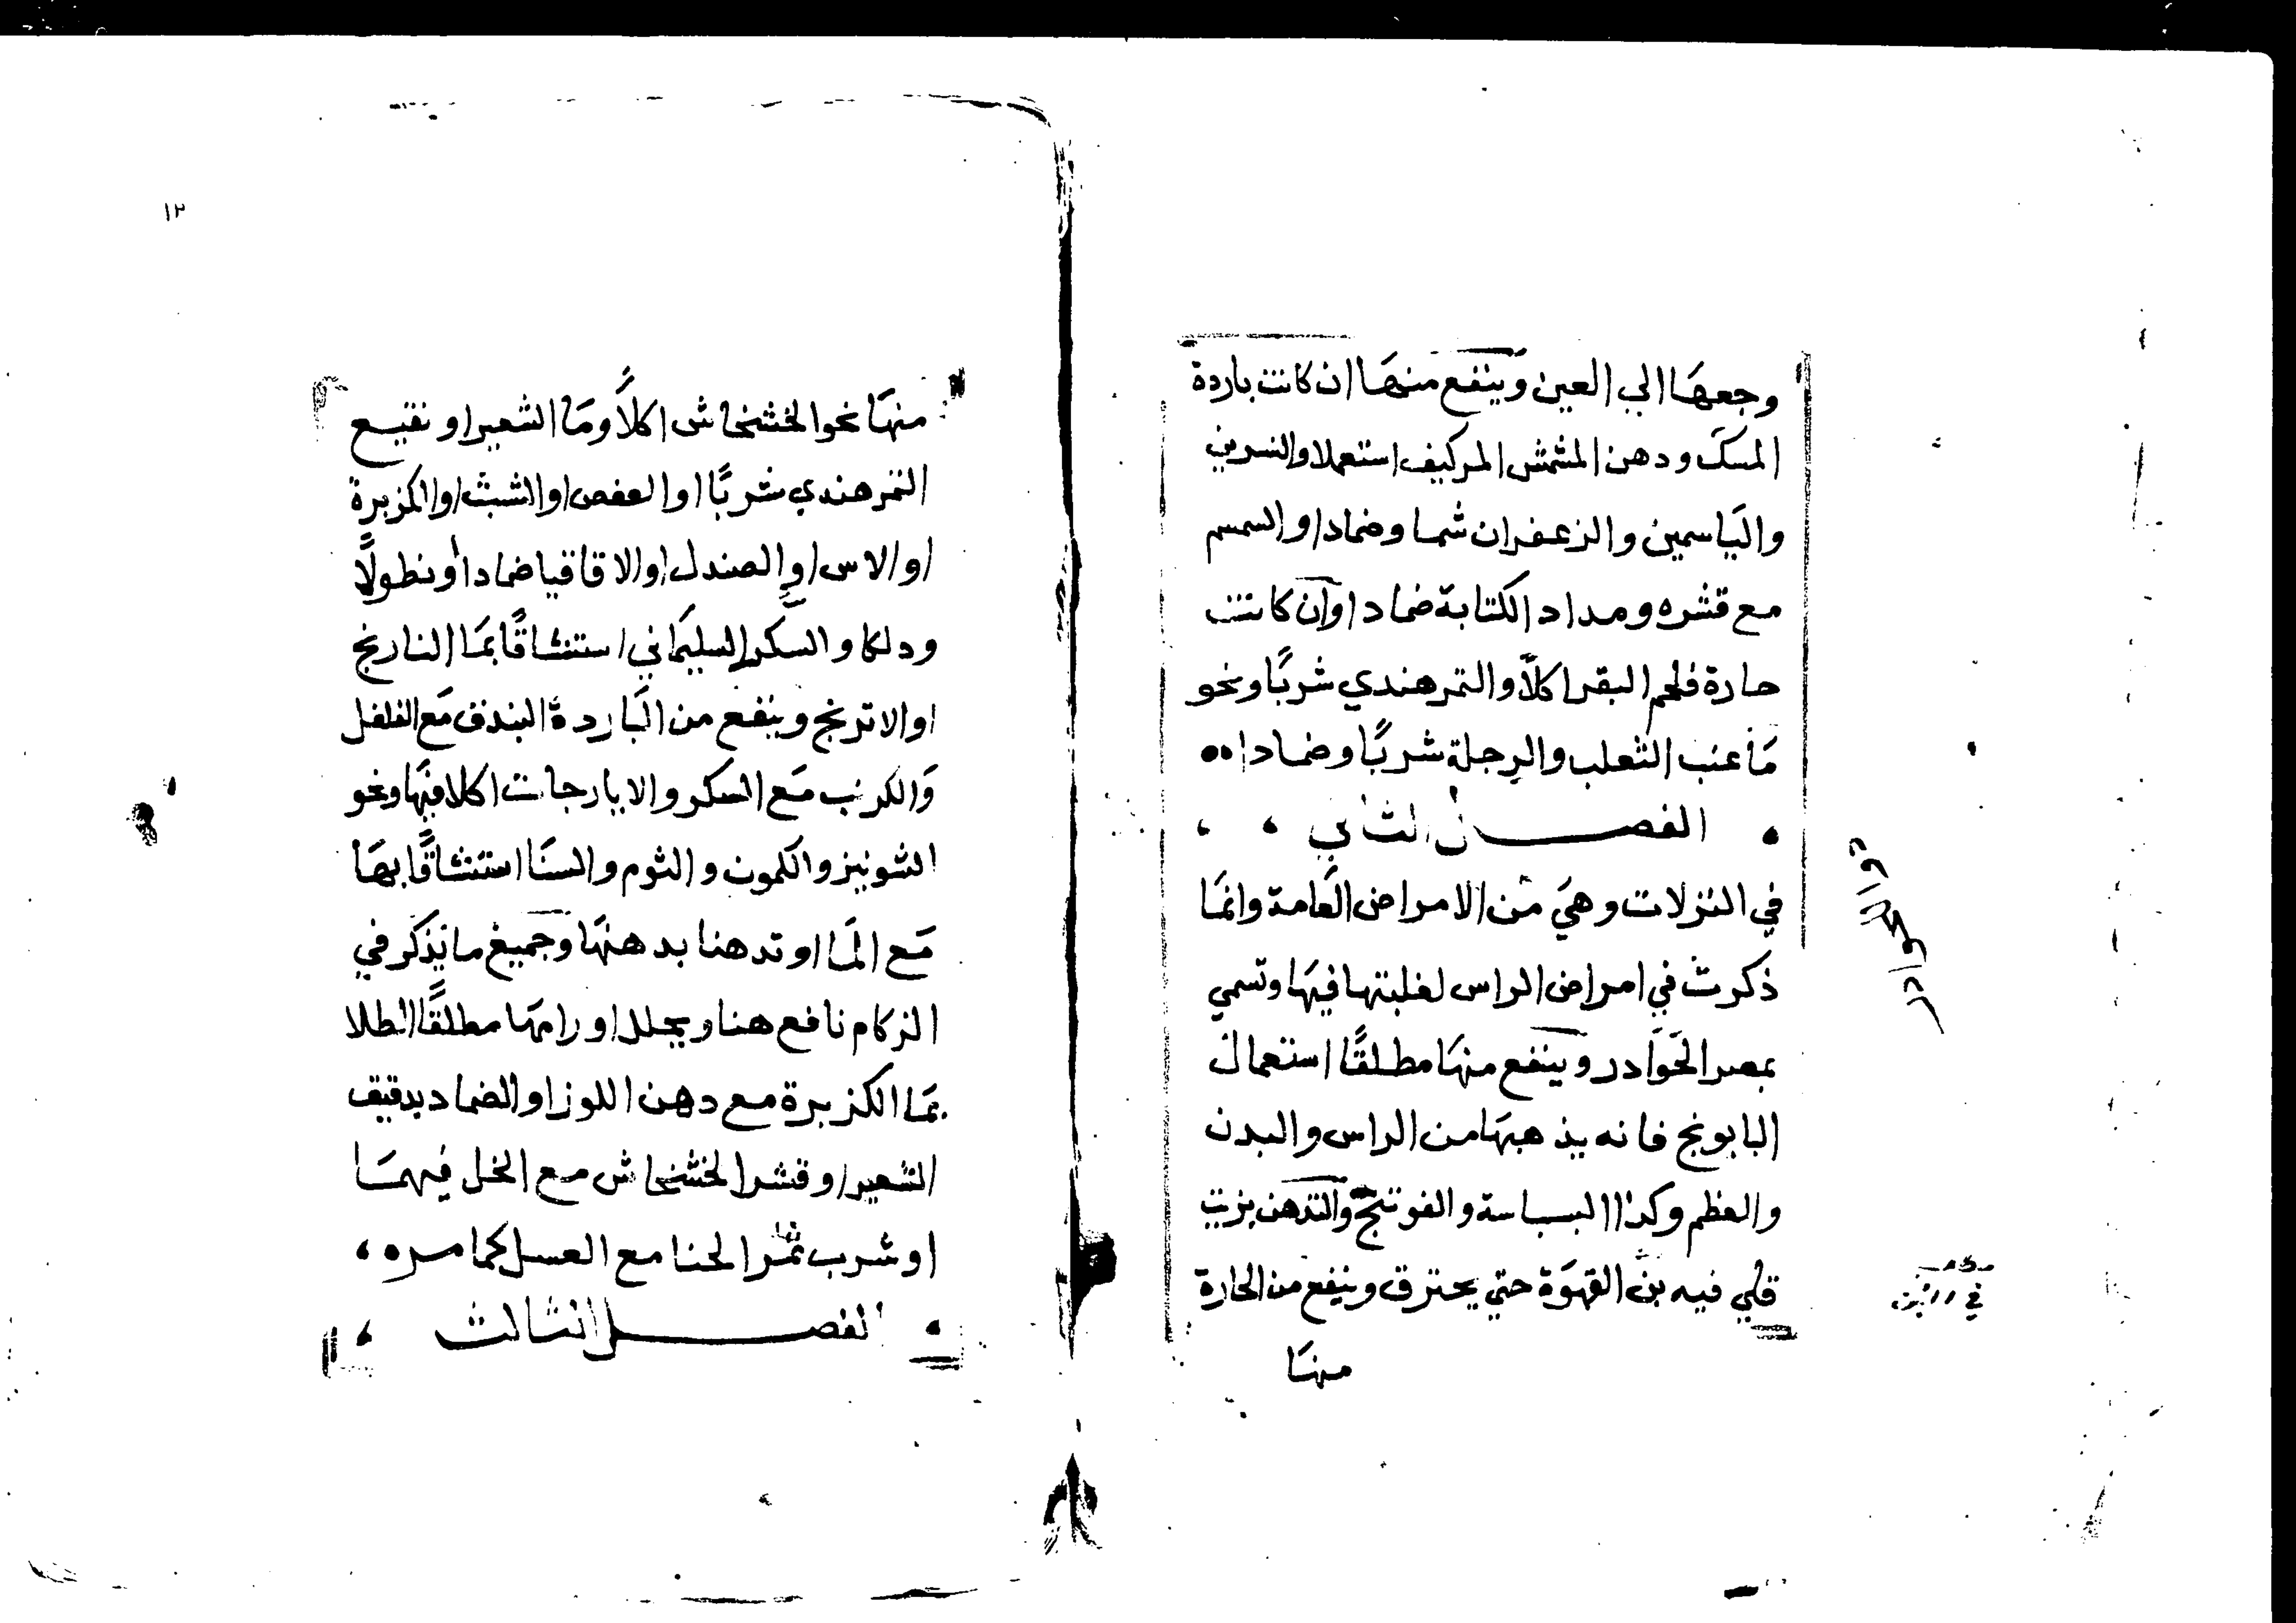 وجعهَا الي العين وينفع منهَا ان كانت باردة
المسك ودهن المشمش المركيف استعملا والنسرين
واليَاسمين والزعفران شما وضمادا والسمسم
مع قشره ومداد الكتابة ضمادا وان كانت
حارة فلحم البقر اكلاً والتمرهندي شربًا ونحو
مَا عنب الثعلب والرجلة شربًا وضمادا
الفصل الثاني
في النزلات وهيَ من الامراض العَامة وانمَا
ذكرت في امراض الراس لغلبتها فيهَا وتسمي
بمصر الحَوَادر وينفع منهَا مطلقًا استعمال
البابونج فانه يذهبهَا من الراس والبدن
والعظم وكذا البسباسة والفوتنج والتدهن بزيت
قلي فيه بن القهوَة حتي يحترق وينفع من الحارة
منهَا
الحوادر
١٣
منهَا نحو الخشخاش اكلاً ومَا الشعير او نقيع
التمرهندي شربًا او العفص او الشبث او الكزبرة
او الاس او الصندل او الاقاقيا ضمادا او نطولاً
ودلكا والسكر السليمَاني استنشاقًا بمَا النارنج
او الاترنج وينفع من البَاردة البندق مَع الفلفل
وَالكرنب مَع السكر والايارجات اكلا فيهَا ونحو
الشونيز والكمون والثوم والسنَا استنشاقًا بهَا
مَع المَا او تدهنا بدهنهَا وجميع ما يذكر في
الزكام نافع هنا ويحلل اورامهَا مطلقًا الطلا
بمَا الكزبرة مع دهن اللوز او الضماد بدقيق
الشعير او قشر الخشخاش مع الخل فيهمَا
او شرب ثمر الحنا مع العسل كما مر
الفصل الثالث